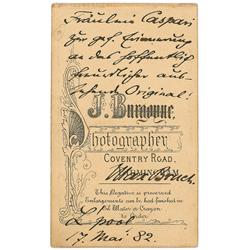 Fräulein Caspari
zur gef. Erinnerung
an das hoffentlich
freundlicher aus-
sehend Original:
J. Burgoyne,
Photographer
COVENTRY ROAD,
BIRMINGHAM.
Max Bruch.
This Negative is preserved
Enlargements can be had finished in
Oil Water or Crayon
to Order
L'pool
7. Mai 82.